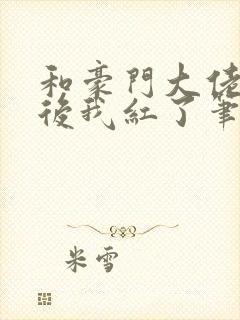 和豪門大佬
後我紅了筆
米雪